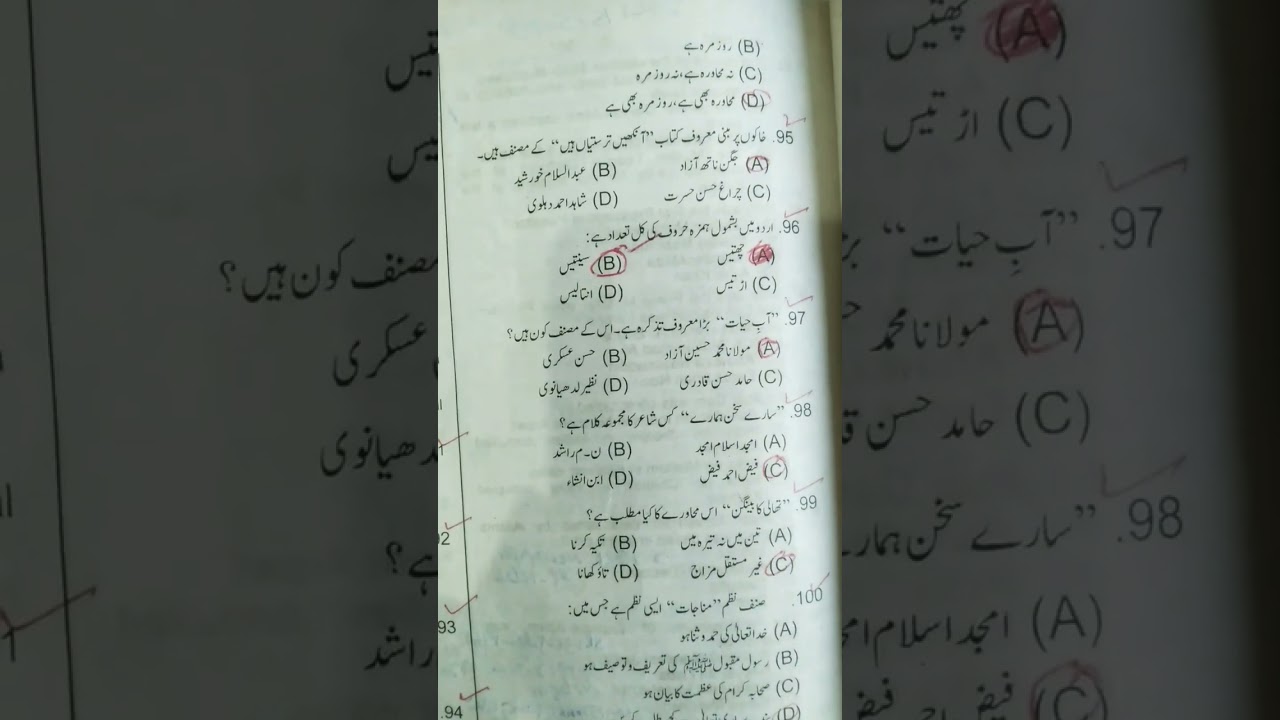 (B) روزمرہ ہے
(C) نہ محاورہ ہے، نہ روزمرہ
(D) محاورہ بھی ہے، روزمرہ بھی ہے
95. خاکوں پر مبنی معروف کتاب ”آنکھیں ترستیاں ہیں“ کے مصنف ہیں۔
(A) جگن ناتھ آزاد (B) عبدالسلام خورشید
(C) چراغ حسن حسرت (D) شاہد احمد دہلوی
96. اردو میں بشمول ہمزہ حروف کی کل تعداد ہے:
(A) چھتیس (B) سینتیس
(C) اڑتیس (D) انتالیس
97. ”آبِ حیات“ بڑا معروف تذکرہ ہے۔ اس کے مصنف کون ہیں؟
(A) مولانا محمد حسین آزاد (B) حسن عسکری
(C) حامد حسن قادری (D) نظیر لدھیانوی
98. ”سارے سخن ہمارے“ کس شاعر کا مجموعہ کلام ہے؟
(A) امجد اسلام امجد (B) ن۔م راشد
(C) فیض احمد فیض (D) ابن انشاء
99. ”تھالی کا بینگن“ اس محاورے کا کیا مطلب ہے؟
(A) تین میں نہ تیرہ میں (B) تکیہ کرنا
(C) غیر مستقل مزاج (D) تاؤ کھانا
100. صنف نظم ”مناجات“ ایسی نظم ہے جس میں:
(A) خدا تعالیٰ کی حمد و ثنا ہو
(B) رسول مقبول ﷺ کی تعریف و توصیف ہو
(C) صحابہ کرام کی عظمت کا بیان ہو
(D)
93
94